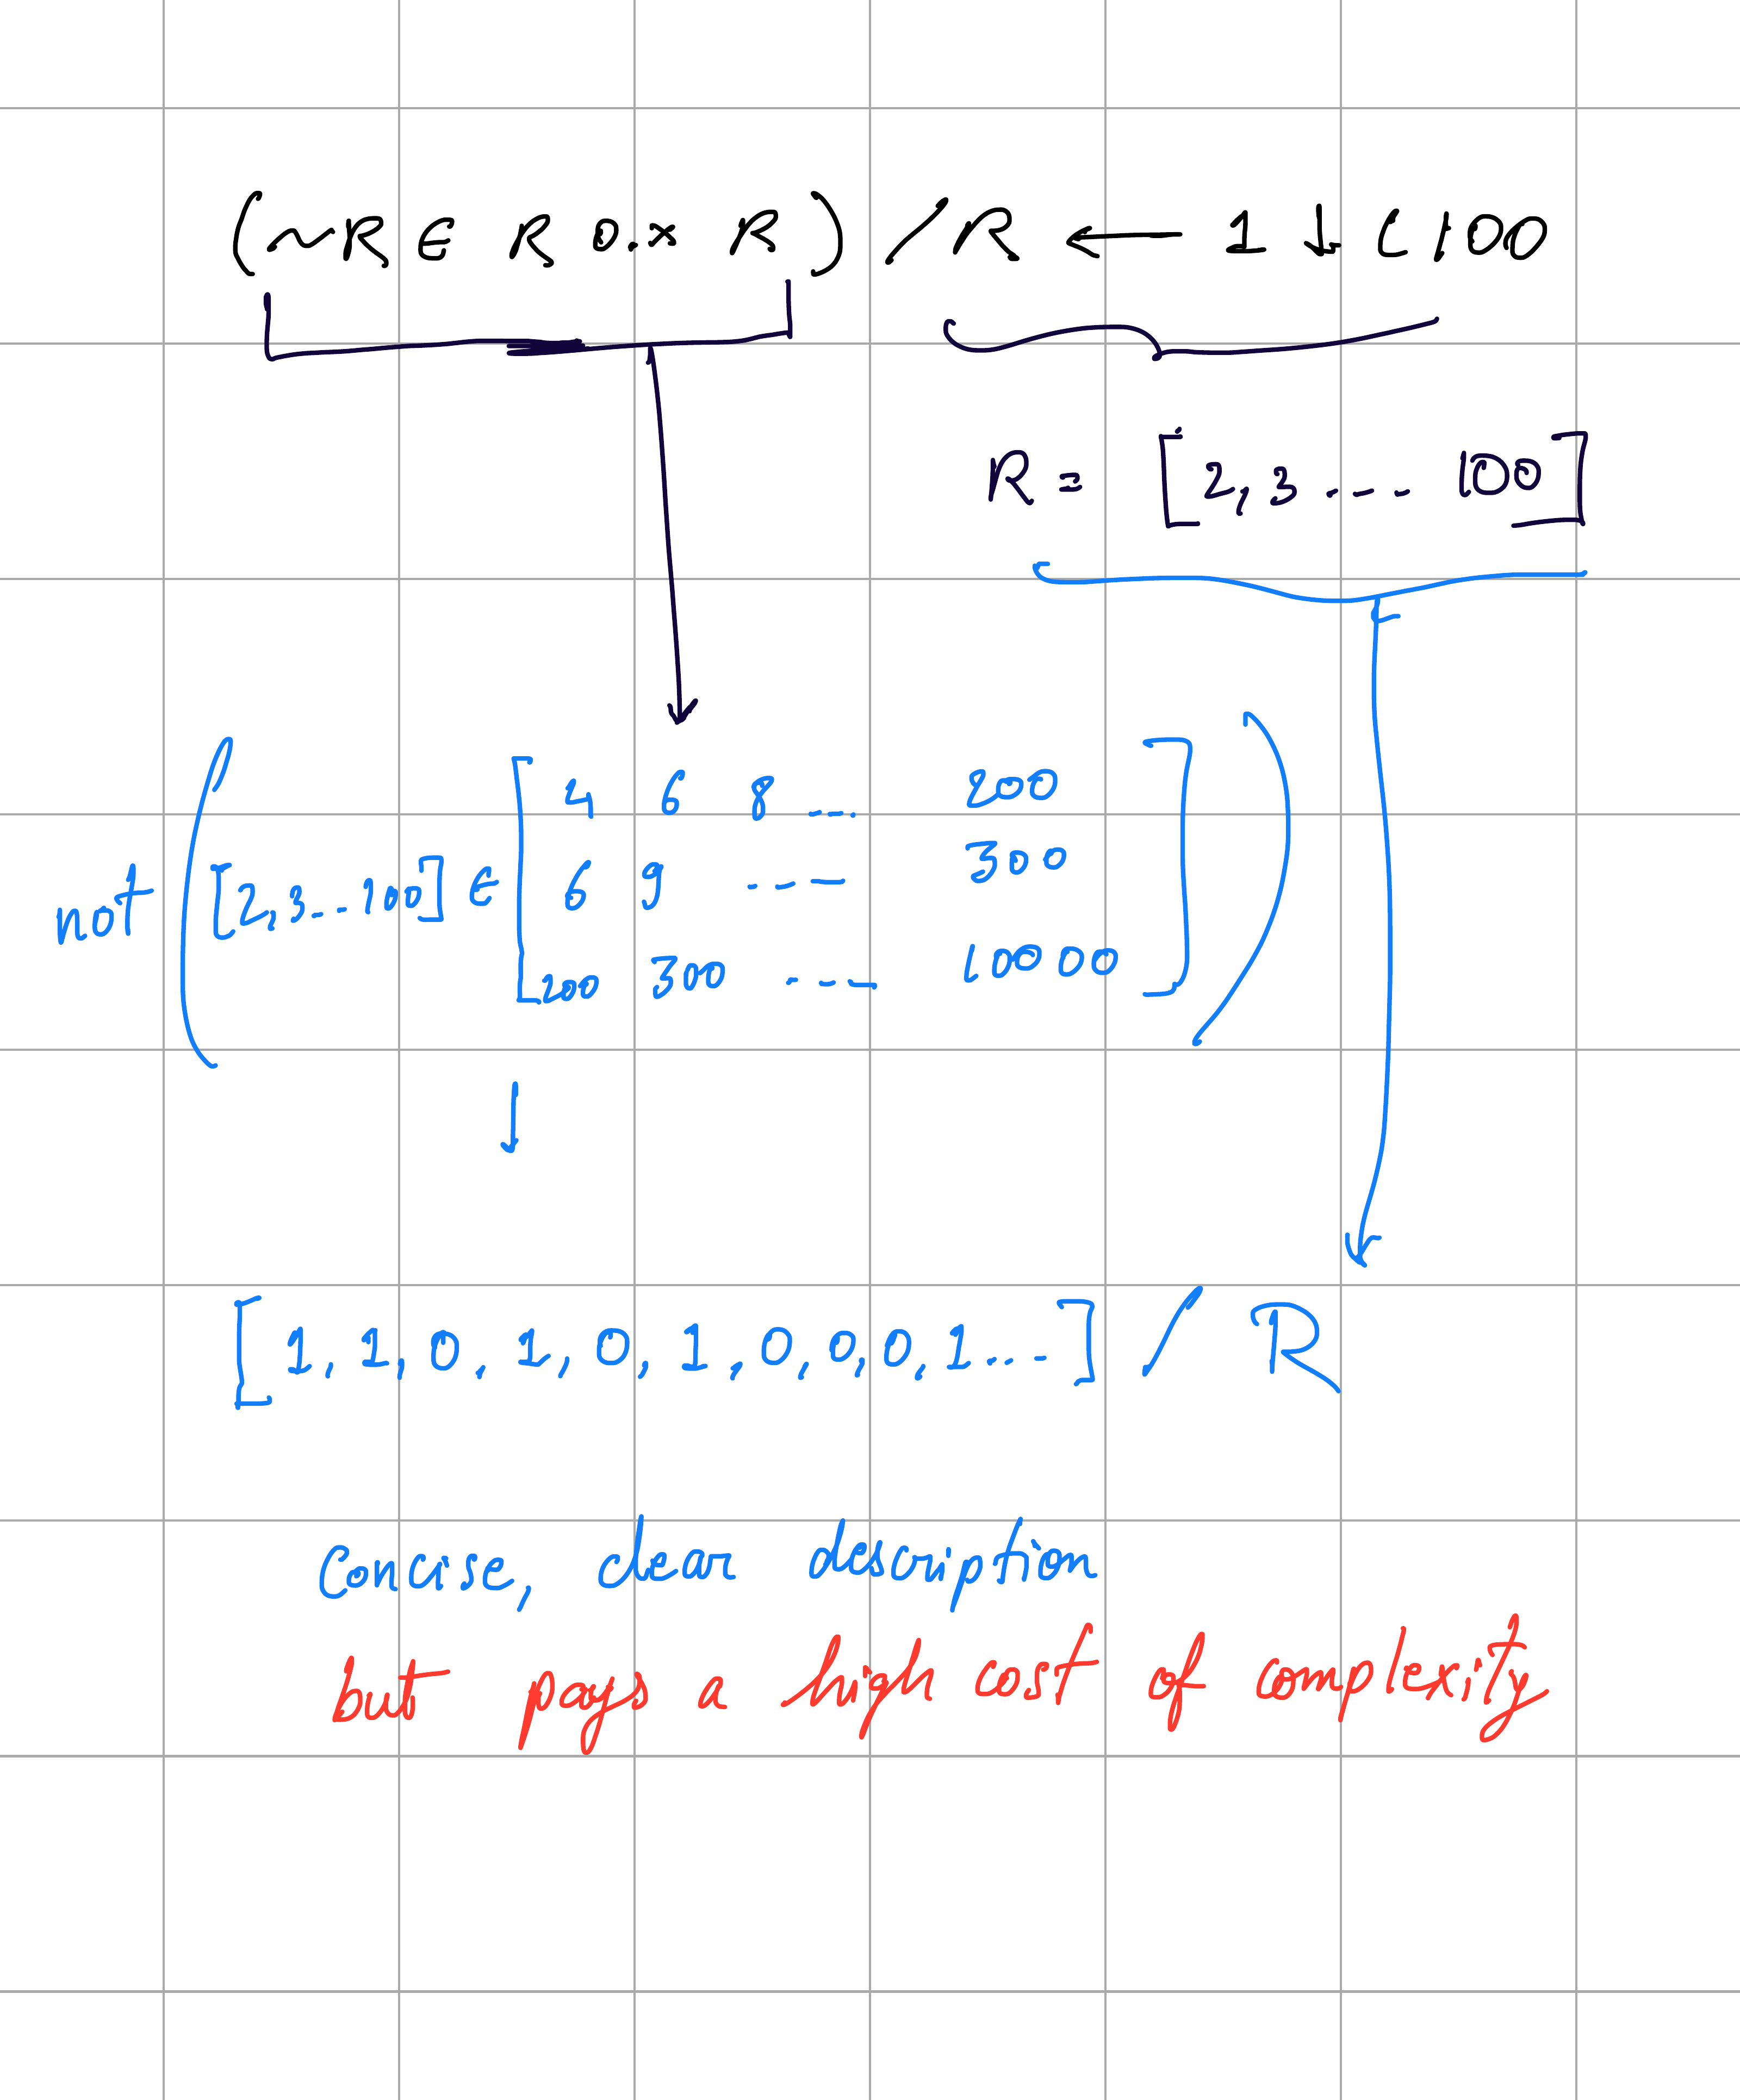 (~R∈R∘.×R)/R←1↓ι100
R= [2,3.... 100]
4 6 8 ... 200
not ([2,3...100] ∈ 6 9 .... 300
200 300 .... 10000])
[1,1,0,1,0,1,0,0,0,1...] / R
Concise, clear description
but pays a high cost of complexity